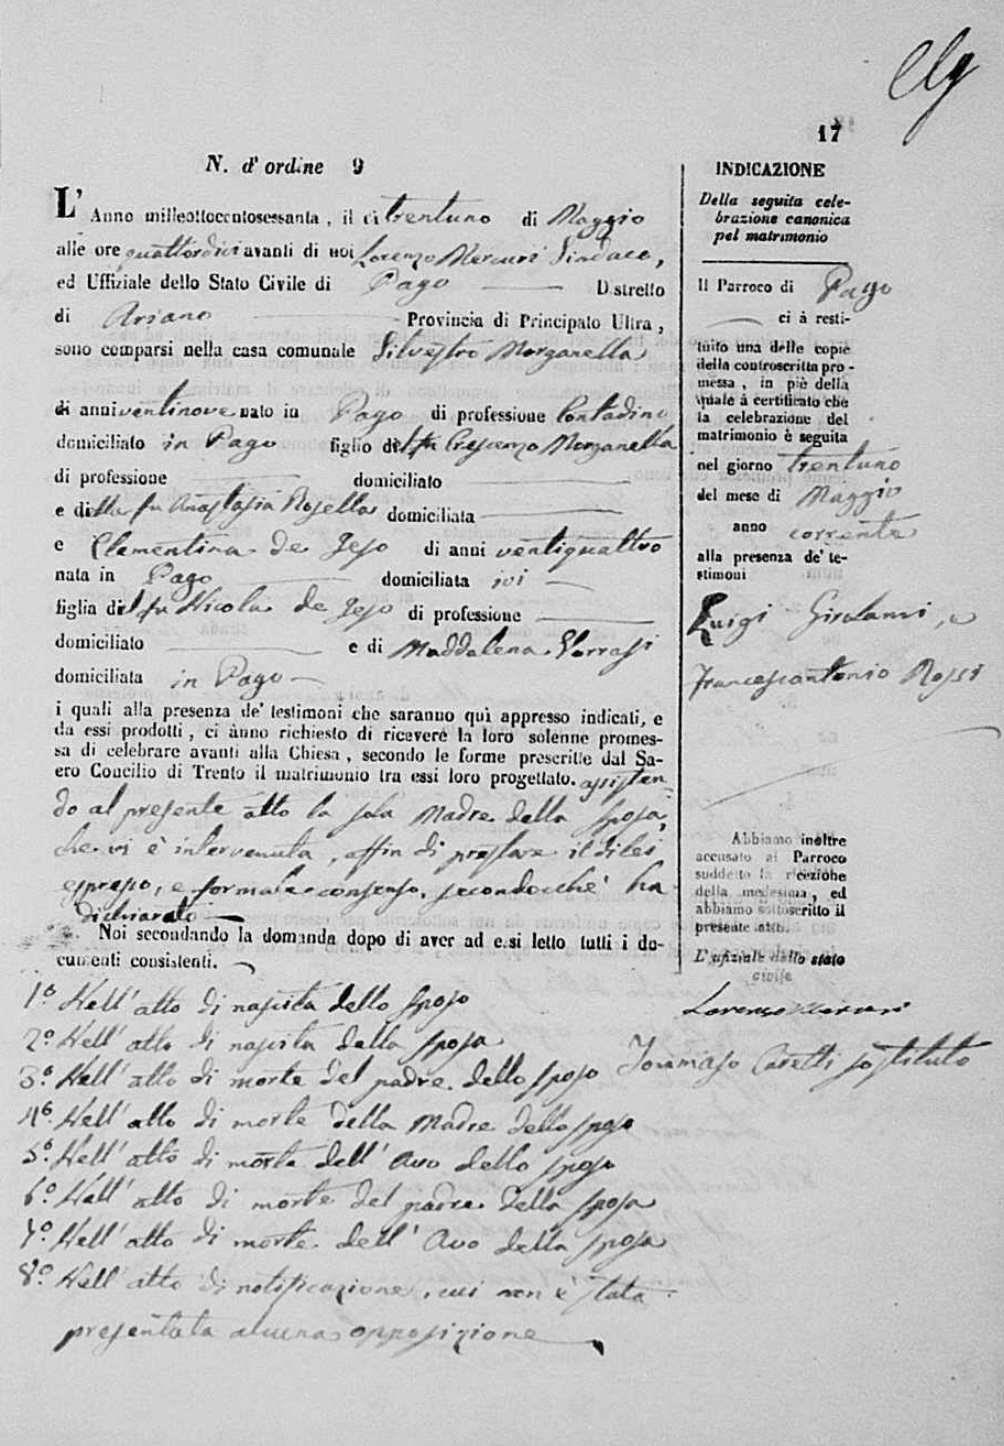 17
N. d' ordine 9
L' Anno milleottocentosessanta, il dì trentuno di Maggio
alle ore quattordici avanti di noi Lorenzo Mercuri Sindaco,
ed Uffiziale dello Stato Civile di Pago Distretto
di Ariano Provincia di Principato Ultra,
sono comparsi nella casa comunale Silvestro Morganella
di anni ventinove nato in Pago di professione Contadino
domiciliato in Pago figlio del fu Crescenzo Morganella
di professione domiciliato
e della fu Anastasia Rosella domiciliata
e Clementina de Jeso di anni ventiquattro
nata in Pago domiciliata ivi
figlia del fu Nicola de Jeso di professione
domiciliato e di Maddalena Varrasi
domiciliata in Pago
i quali alla presenza de' testimoni che saranno quì appresso indicati, e
da essi prodotti, ci ànno richiesto di ricevere la loro solenne promes-
sa di celebrare avanti alla Chiesa, secondo le forme prescritte dal Sa-
cro Concilio di Trento il matrimonio tra essi loro progettato. assisten-
do al presente atto la sola Madre della sposa,
che vi è intervenuta, affin di prestare il di lei
espresso, e formale consenso, secondocchè ha
dichiarato
Noi secondando la domanda dopo di aver ad essi letto tutti i do-
cumenti consistenti.
1.° Nell' atto di nascita dello sposo
2.° Nell' atto di nascita della sposa
3.° Nell' atto di morte del padre dello sposo
4.° Nell' atto di morte della Madre dello sposo
5.° Nell' atto di morte dell' Avo dello sposo
6.° Nell' atto di morte del padre della sposa
7.° Nell' atto di morte dell' Avo della sposa
8.° Nell' atto di notificazione, cui non è stata
presentata alcuna opposizione
INDICAZIONE
Della seguita cele-
brazione canonica
pel matrimonio
Il Parroco di Pago
ci à resti-
tuito una delle copie
della controscritta pro-
messa, in piè della
quale à certificato che
la celebrazione del
matrimonio è seguita
nel giorno trentuno
del mese di Maggio
anno corrente
alla presenza de' te-
stimoni
Luigi Girolami, e
Francescantonio Rossi
Abbiamo inoltre
accusato al Parroco
suddetto la ricezione
della medesima, ed
abbiamo sottoscritto il
presente atto.
L' ufiziale dello stato
civile
Lorenzo Mercuri
Tommaso Caretti sostituto